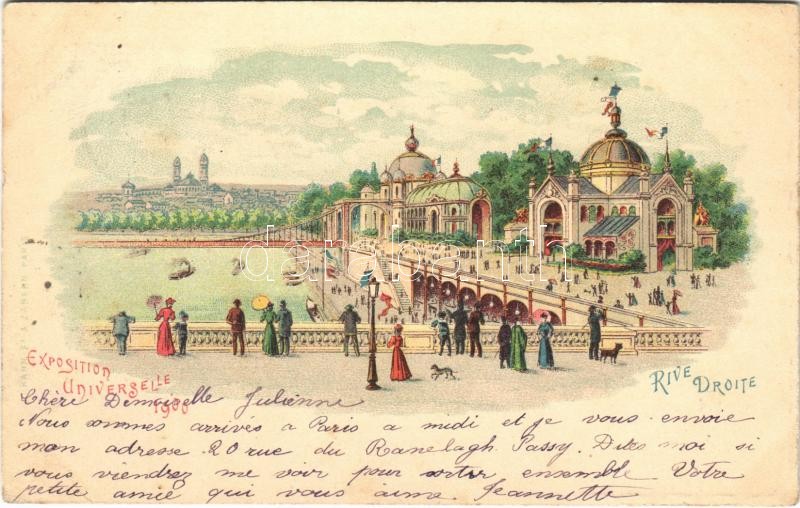 darabanth
EXPOSITION
UNIVERSELLE
1900
RIVE DROITE
Chère Demoiselle Julienne
Nous sommes arrivés a Paris a midi et je vous envoie
mon adresse 20 rue du Ranelagh Passy. Dites moi si
vous viendrez me voir pour sortir ensemble Votre
petite amie qui vous aime Jeannette